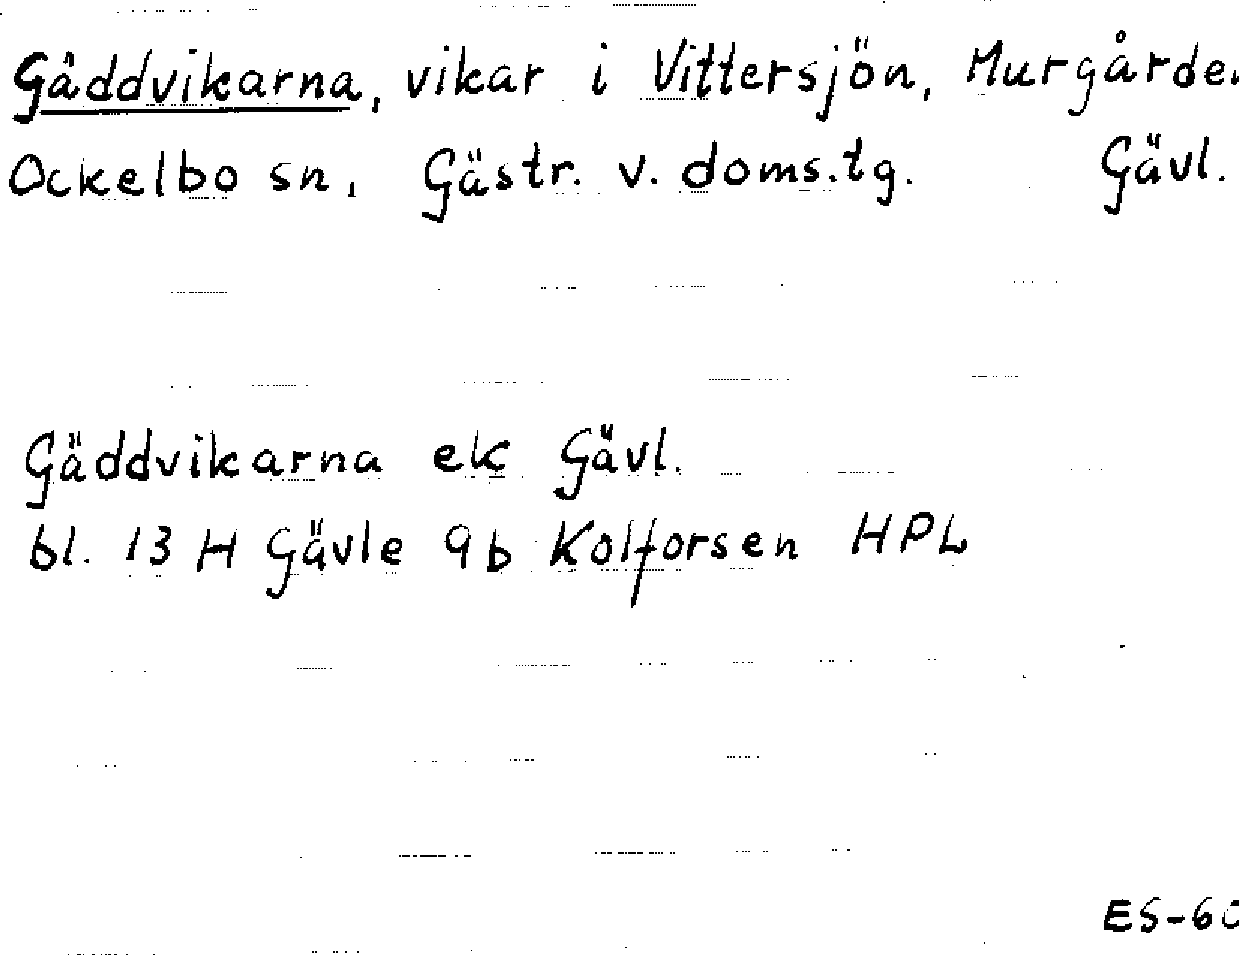 Gäddvikarna, vikar i Vittersjön, Murgårde
Ockelbo sn, Gästr. v. doms.tg. Gävl.
Gäddvikarna ek Gävl.
bl. 13 H Gävle 9b Kolforsen HPL
ES-60